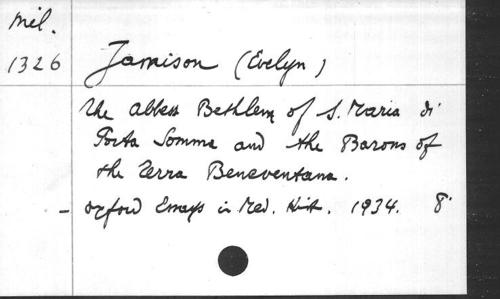 Mel.
1326
Jamison (Evelyn)
The abbess Bethlem of S. Maria di
Porta Somma and the Barons of
the Terra Beneventana.
- Oxford Essays in Med. Hist. 1934. 8°